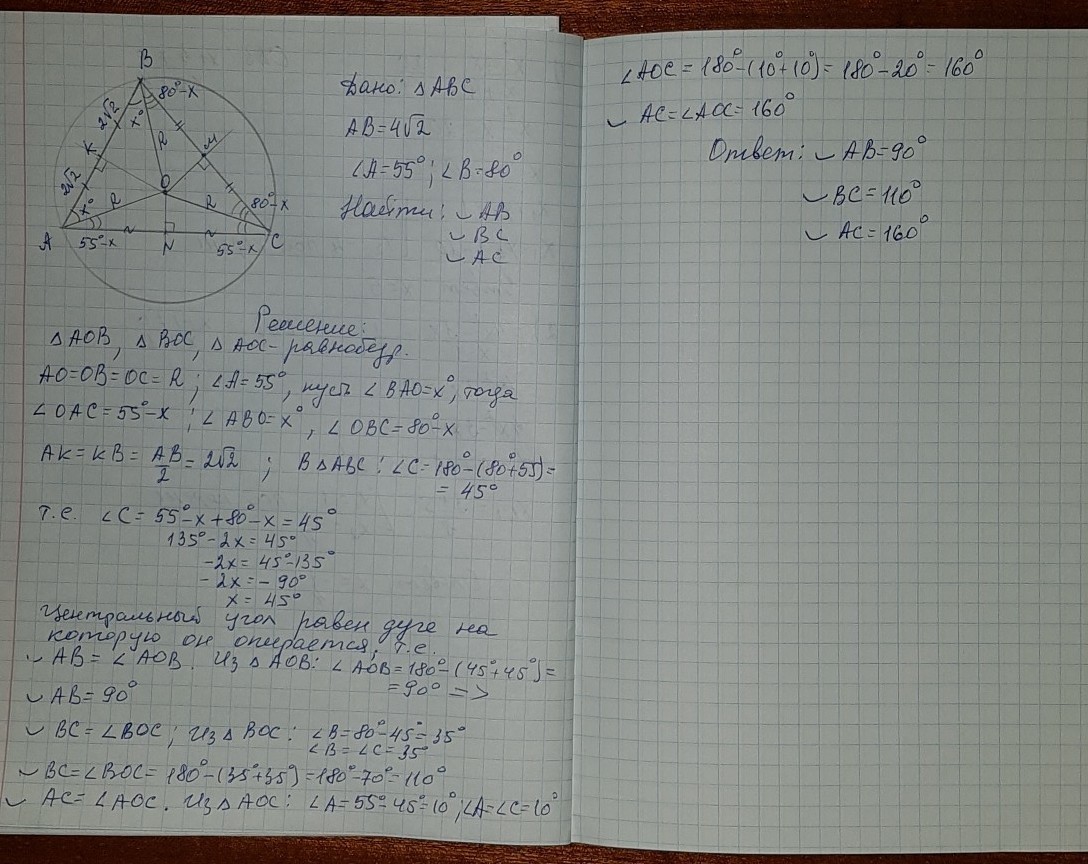 B
80°-x
2√2
x°
K
R
M
2√2
O
x°
R
R
80°-x
A
55°-x
N
55°-x
C
Дано: △ABC
AB=4√2
∠A=55°; ∠B=80°
Найти: ◡ AB
◡ BC
◡ AC
Решение:
△AOB, △BOC, △AOC-равнобедр.
AO=OB=OC=R; ∠A=55°, пусть ∠BAO=x°, тогда
∠OAC=55°-x; ∠ABO=x°, ∠OBC=80°-x
AK=KB=AB/2=2√2 ; В △ABC: ∠C=180°-(80°+55)=
= 45°
т.е. ∠C= 55°-x+80°-x=45°
135°-2x=45°
-2x=45°-135°
-2x=-90°
x=45°
Центральный угол равен дуге на
которую он опирается, т.е.
◡ AB=∠AOB. Из △AOB: ∠AOB=180°-(45°+45°)=
=90° =>
◡ AB=90°
◡ BC=∠BOC; Из △BOC: ∠B=80°-45°=35°
∠B=∠C=35°
◡ BC=∠BOC=180°-(35°+35°)=180°-70°=110°
◡ AC=∠AOC. Из △AOC: ∠A=55°-45°=10°; ∠A=∠C=10°
∠AOC=180°-(10°+10°)=180°-20°=160°
◡ AC=∠AOC=160°
Ответ: ◡ AB=90°
◡ BC=110°
◡ AC=160°